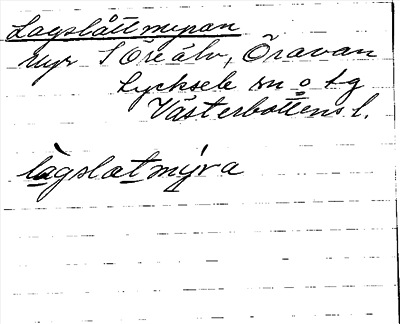 Lagslåttmyran
myr S Öreälv, Öravan
Lycksele sn o tg
Västerbottens l.
làgslatmýra